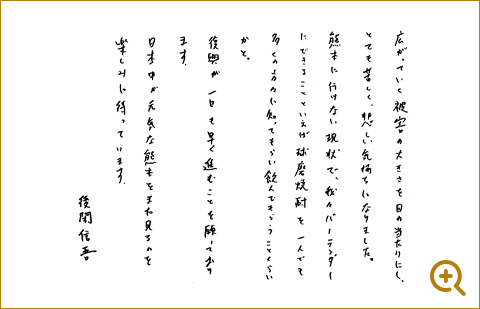 広がっていく被害の大きさを目の当たりにし、
とても苦しく、悲しい気持ちになりました。
熊本に行けない現状で、我々バーテンダー
にできることといえば球磨焼酎を一人でも
多くの方々に知ってもらい飲んでもらうことくらい
かと。
復興が一日も早く進むことを願っており
ます。
日本中が元気な熊本をまた見るのを
楽しみに待っています。
後閑信吾